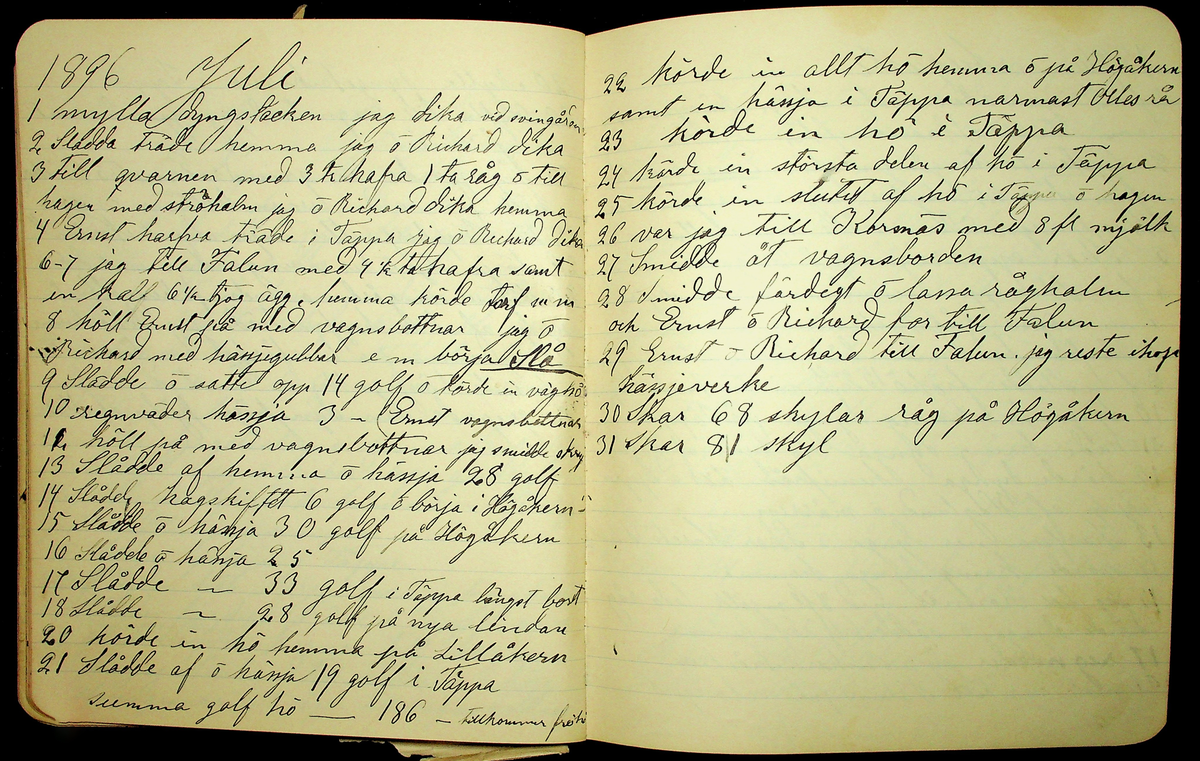 1896 Juli
1 mylla dyngstacken jag dika vid svingår
2 Sladda träde hemma jag ō Richard dika
3 till qvarnen med 3 tr hafra 1 ta råg ō till
hagen med ströhalm jag ō Richard dika hemma
4 Ernst harfva träde i Täppa jag ō Richard dika
6-7 jag till Falun med 4 ½ ta hafra samt
en kalf 6 ½ tjog ägg. hemma körde torf m m
8 höll Ernst på med vagnsbottnar jag ō
Richard med hässjegubbar e m börja Slå
9 Slådde ō satte opp 14 golf ō körde in väghö
10 regnväder hässja 3 – Ernst vagnsbottnar
12 höll på med vagnsbottnar jag smidde
13 Slådde af hemma ō hässja 28 golf
14 Slådde hagskiftet 6 golf ō börja i Högåkern
15 Slådde ō hässja 30 golf på Högåkern
16 Slådde ō hässja 25
17 Slådde – 33 golf i Täppa längst bort
18 Slådde – 28 golf på nya lindan
20 körde in hö hemma på Lillåkern
21 Slådde af ō hässja 19 golf i Täppa
summa golf hö — 186 – tillkommer
22 körde in allt hö hemma ō på Högåkern
samt en hässja i Täppa narmast Olles rå
23 körde in hö i Täppa
24 körde in största delen af hö i Täppa
25 körde in slutet af hö i Täppa ō hagen
26 var jag till Korsnäs med 8 ft mjölk
27 Smidde åt vagnsborden
28 Smidde färdegt ō lassa råghalm
och Ernst ō Richard for till Falun
29 Ernst ō Richard till Falun. jag reste ihop
hässjeverke
30 Skar 68 skylar råg på Högåkern
31 Skar 81 skyl